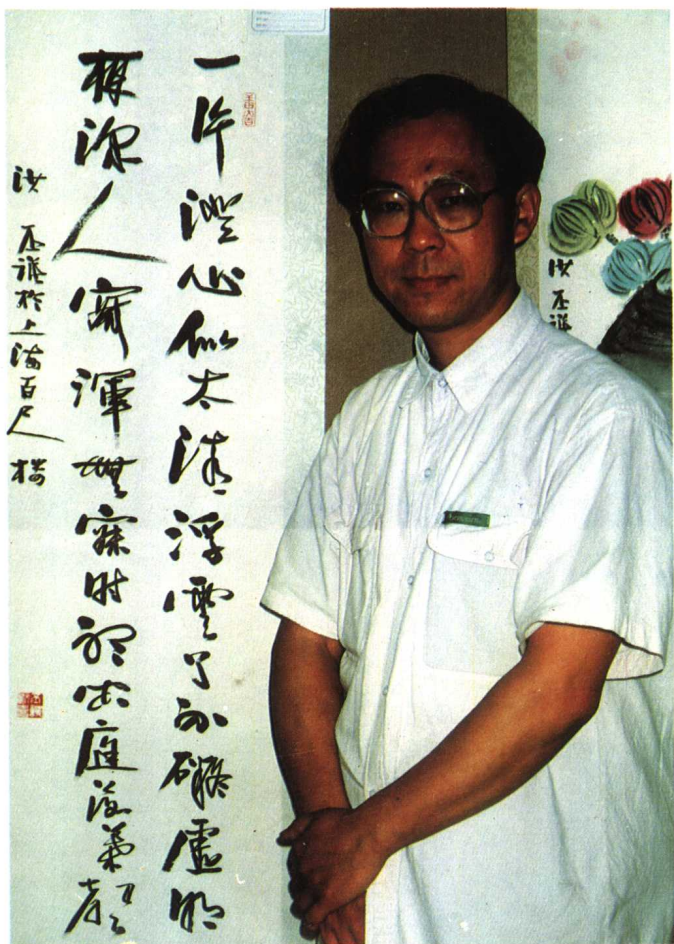 一片澄心似太清浮雲了不礙虛明
深人寂渾無寐时聽空庭落葉聲
洪丕謨於上海百尺樓
洪丕謨